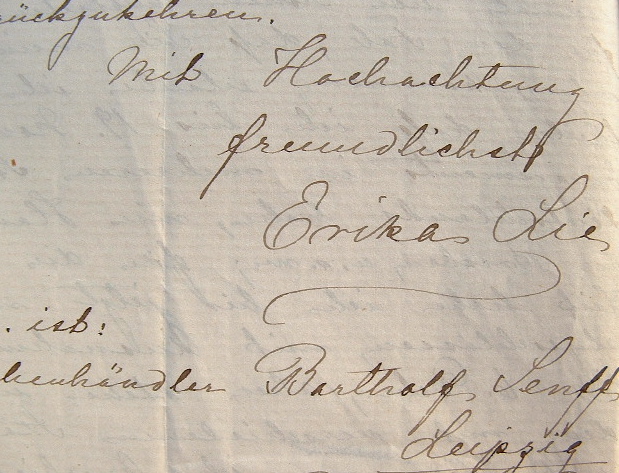 rückzukehren.
Mit Hochachtung
freundlichst
Erika Lie
. ist:
henhändler Bartholf Senff
Leipzig